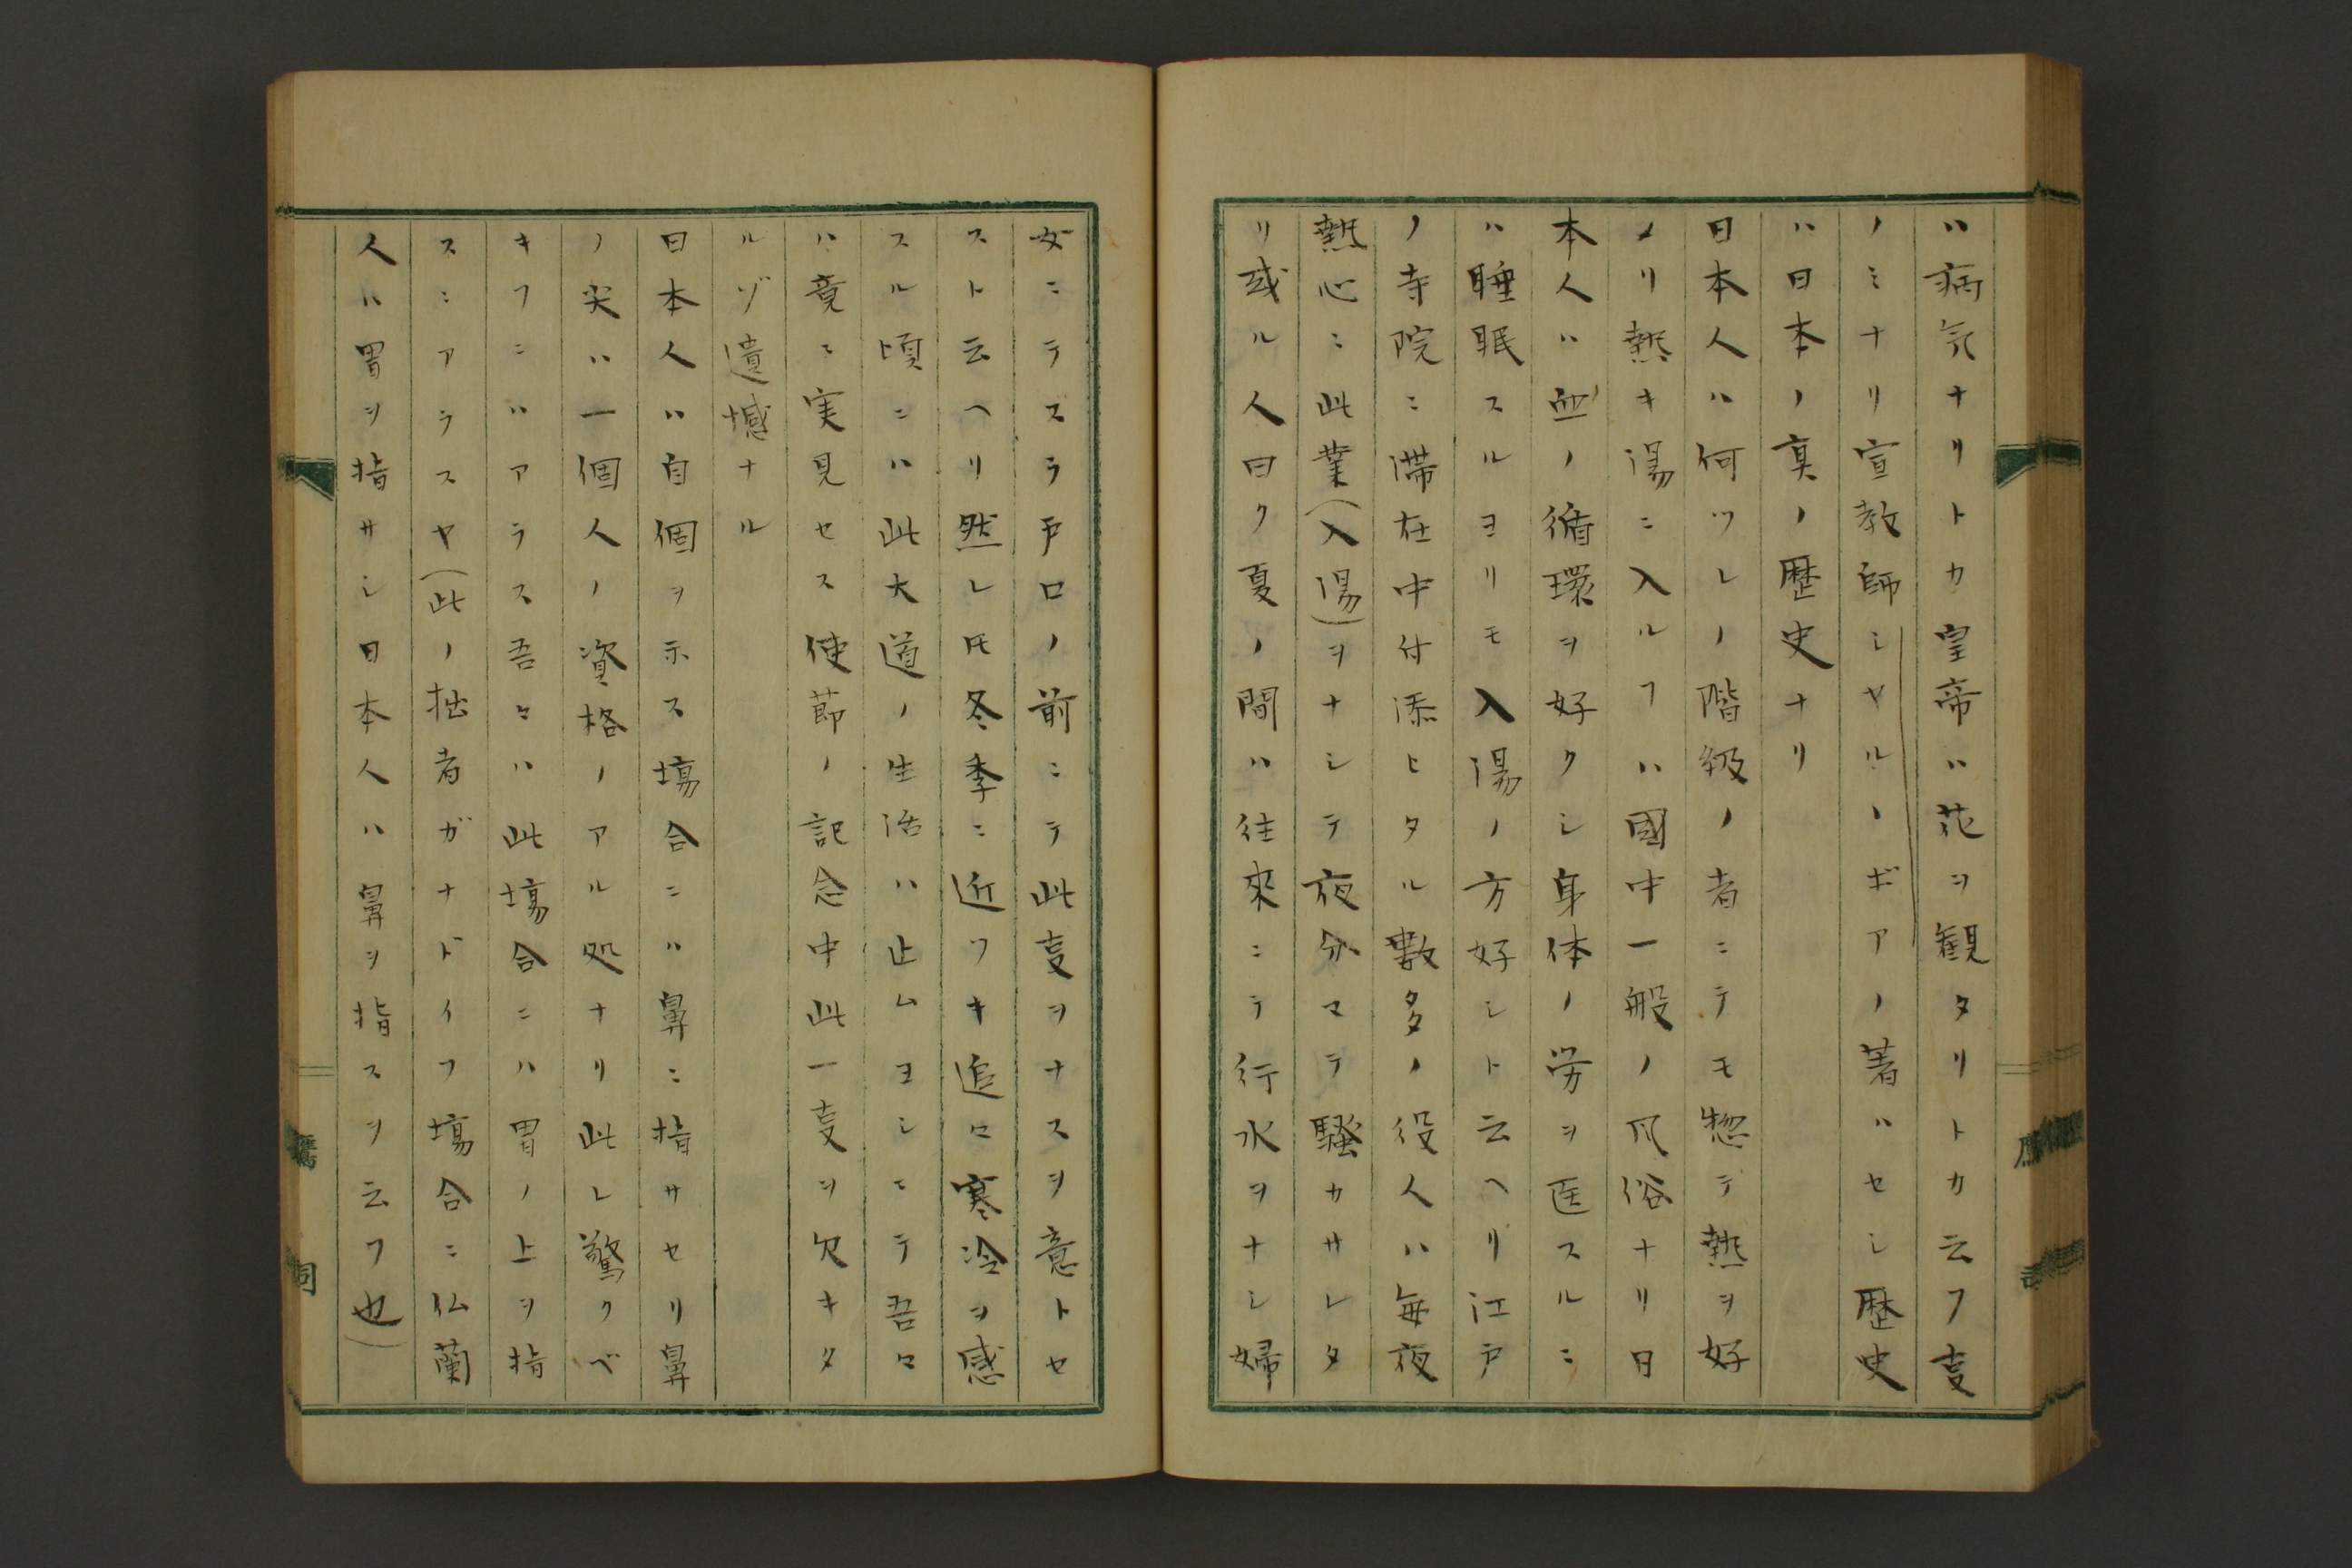 ハ病気ナリトカ皇帝ハ花ヲ観タリトカ云フ叓
ノミナリ宣教師シヤルヽギアノ著ハセシ歴史
ハ日本ノ真ノ歴史ナリ
日本人ハ何ツレノ階級ノ者ニテモ惣テ熱ヲ好
メリ熱キ湯ニ入ルフハ國中一般ノ风俗ナリ日
本人ハ血ノ循環ヲ好クシ身体ノ労ヲ医スルニ
ハ睡眠スルヨリモ入湯ノ方好シト云ヘリ江戸
ノ寺院ニ滞在中付添ヒタル數多ノ役人ハ毎夜
熱心ニ此業(入湯)ヲナシテ夜分マテ騒カサレタ
リ或ル人曰ク夏ノ間ハ往來ニテ行水ヲナシ婦
女ニテスラ戸口ノ前ニテ此叓ヲナスヲ意トセ
スト云ヘリ然レ𪜈冬季ニ近ツキ追々寒冷ヲ感
スル頃ニハ此大道ノ生活ハ止ムヨシニテ吾々
ハ竟ニ実見セス使節ノ記念中此一叓ヲ欠キタ
ルゾ遺憾ナル
日本人ハ自個ヲ示ス塲合ニハ鼻ニ指サセリ鼻
ノ尖ハ一個人ノ資格ノアル処ナリ此レ驚クベ
キフニハアラス吾々ハ此塲合ニハ胃ノ上ヲ指
スニアラスヤ(此ノ拙者ガナドイフ塲合ニ仏蘭
人ハ胃ヲ指サシ日本人ハ鼻ヲ指スヲ云フ也)